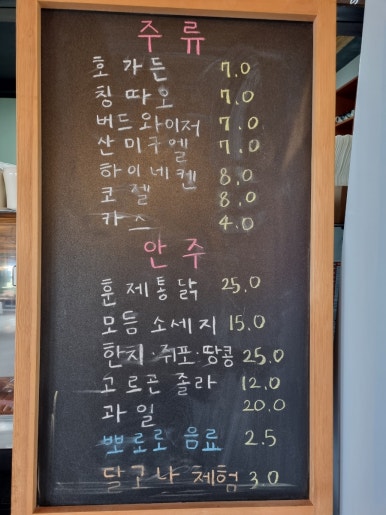 주류
호가든 7.0
칭따오 7.0
버드와이저 7.0
산미구엘 7.0
하이네켄 8.0
코젤 8.0
카스 4.0
안주
훈제통닭 25.0
모듬 소세지 15.0
한치·쥐포·땅콩 25.0
고르곤 졸라 12.0
과일 20.0
뽀로로 음료 2.5
달고나 체험 3.0